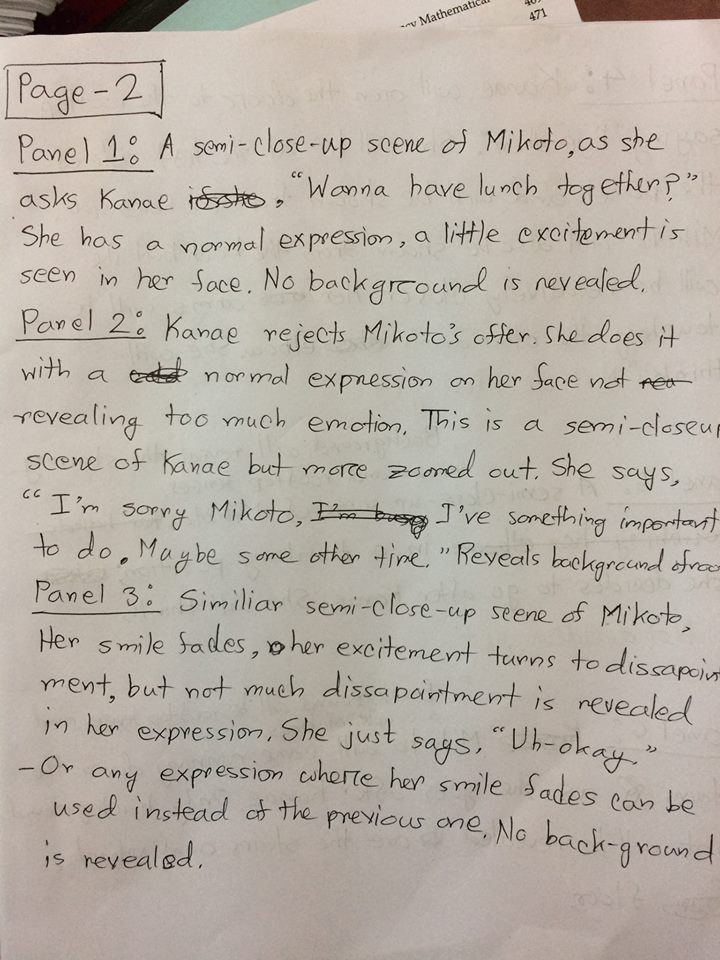 Mathematical
471
Page-2
Panel 1: A semi-close-up scene of Mikoto, as she
asks Kanae, "Wanna have lunch together?"
She has a normal expression, a little excitement is
seen in her face. No background is revealed.
Panel 2: Kanae rejects Mikoto's offer. She does it
with a normal expression on her face not
revealing too much emotion. This is a semi-closeup
scene of Kanae but more zoomed out. She says,
"I'm sorry Mikoto, I'm busy I've something important
to do. Maybe some other time." Reveals background of
Panel 3: Similiar semi-close-up scene of Mikoto,
Her smile fades, her excitement turns to dissapoint
ment, but not much dissapointment is revealed
in her expression. She just says, "Uh-okay."
- Or any expression where her smile fades can be
used instead of the previous one. No back-ground
is revealed.